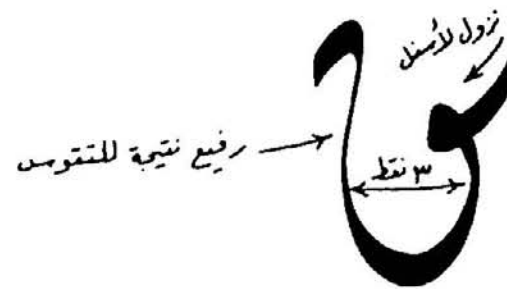 نزول لأسفل
رفيع نتيجة للتقوس
٣ نقط